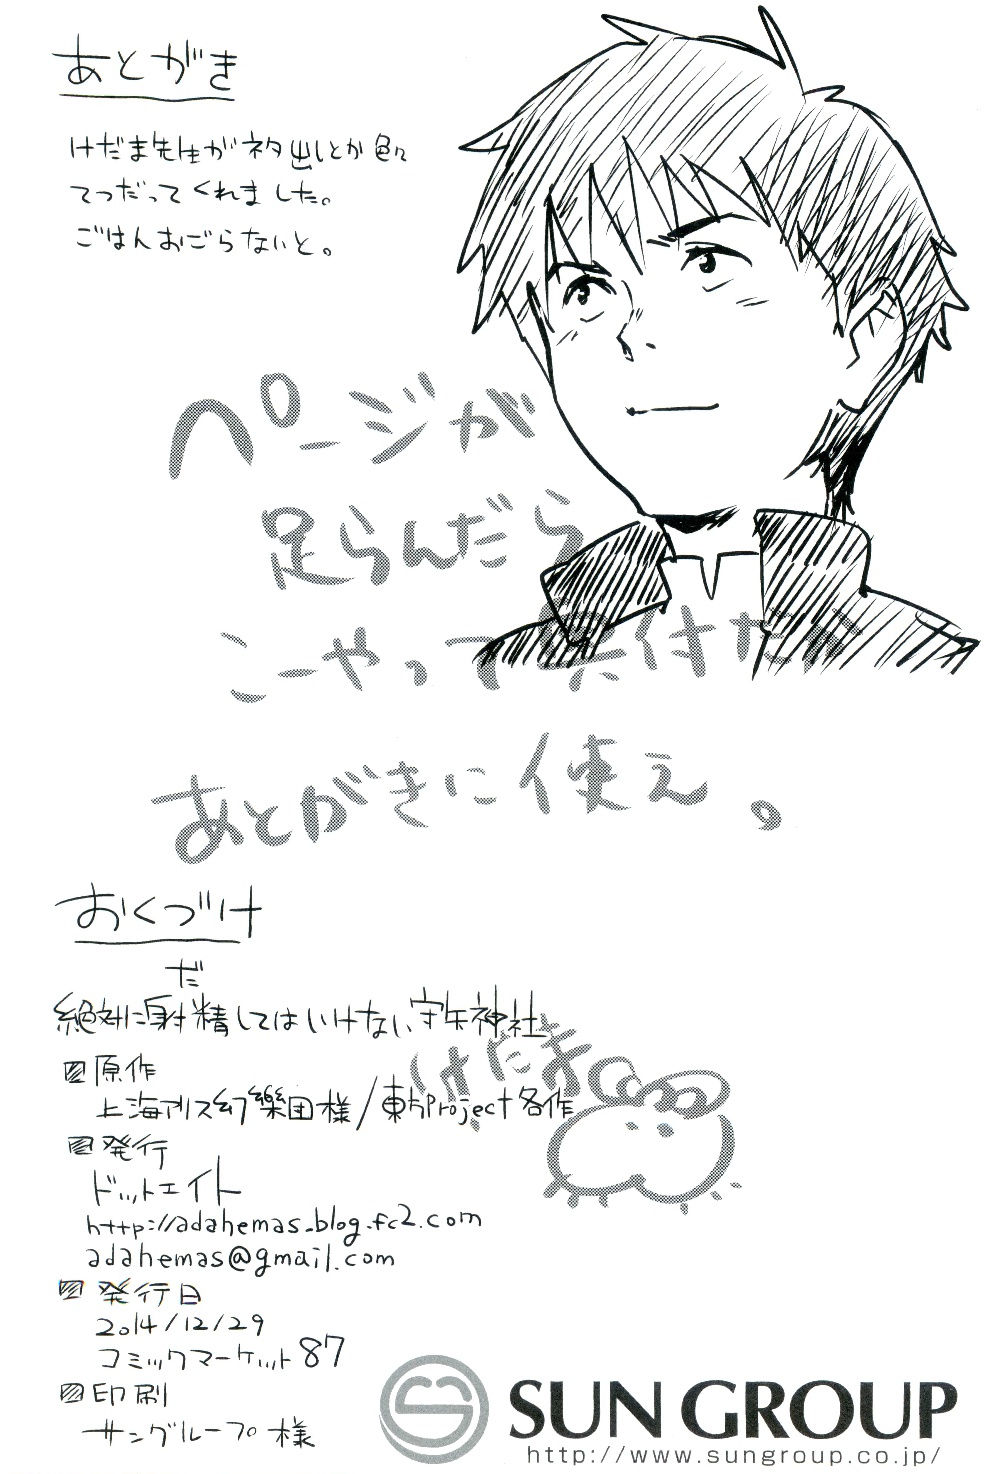 あとがき
けだま先生がネタ出しとか色々
てつだってくれました。
ごはんおごらないと。
ページが
足らんだら
こーやって 付だが
あとがきに使え。
おくづけ
だ
絶対に射精してはいけない守矢神社
けだま
原作
上海アリス幻樂団様/東方Project各作
発行
ドットエイト
http://adahemas.blog.fc2.com
adahemas@gmail.com
発行日
2014/12/29
コミックマーケット87
印刷
サングループ様
SUN GROUP
http://www.sungroup.co.jp/